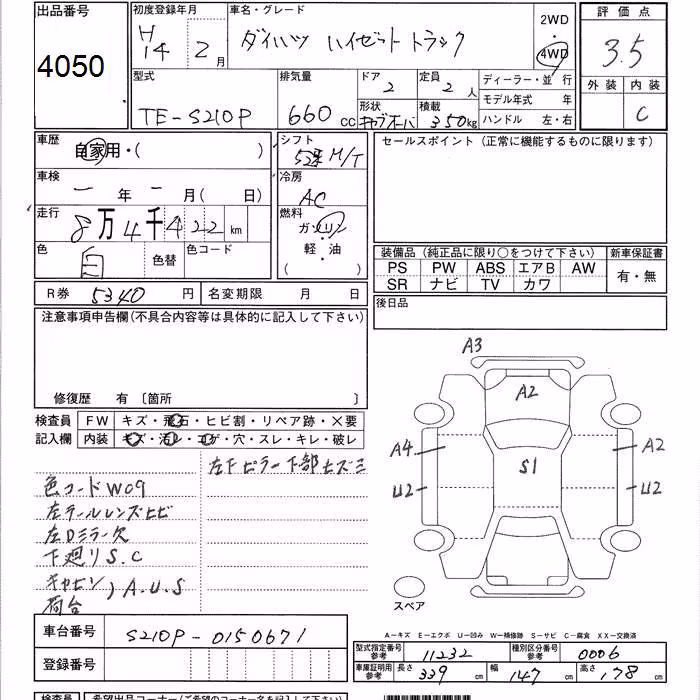 出品番号 4050
初度登録年月 H14 2月
車名・グレード ダイハツ ハイゼット トラック
2WD
4WD
評価点 3.5
外装 内装 C
型式 TE-S210P
排気量 660cc
ドア 2
定員 2人
形状 キャブオーバ
積載 350kg
ディーラー・並行
モデル年式 年
ハンドル 左・右
車歴 自家用・( )
シフト 5速 M/T
セールスポイント(正常に機能するものに限ります)
車検 ー年ー月(日)
冷房 AC
走行 8万4千422km
燃料 ガソリン・軽・油 ( )
色 白 色替 色コード
装備品(純正品に限り○をつけて下さい)
新車保証書
PS PW ABS エアB AW
SR ナビ TV カワ
有・無
R券 5340円 名変期限 月 日
後日品
注意事項申告欄(不具合内容等は具体的に記入して下さい)
修復歴 有〔箇所 〕
検査員 FW キズ・飛石・ヒビ割・リペア跡・×要
記入欄 内装 キズ・汚レ・コゲ・穴・スレ・キレ・破レ
左下ピラー下部ヒズミ
色コードW09
左テールレンズヒビ
左Dミラー欠
下廻りS.C
キャビン,A.U.S
荷台
A3
A2
A4
A2
S1
U2
U2
スペア
車台番号 S210P-0150671
登録番号
A−キズ E−エクボ U−凹み W−補修跡 S−サビ C−腐食 XX−交換済
型式指定番号 参考 11232
種別区分番号 参考 0006
車庫証明用 参考 長さ 339cm 幅 147cm 高さ 178cm
検査員 希望出品コーナー(ご希望のコーナー名を記入して下さい)